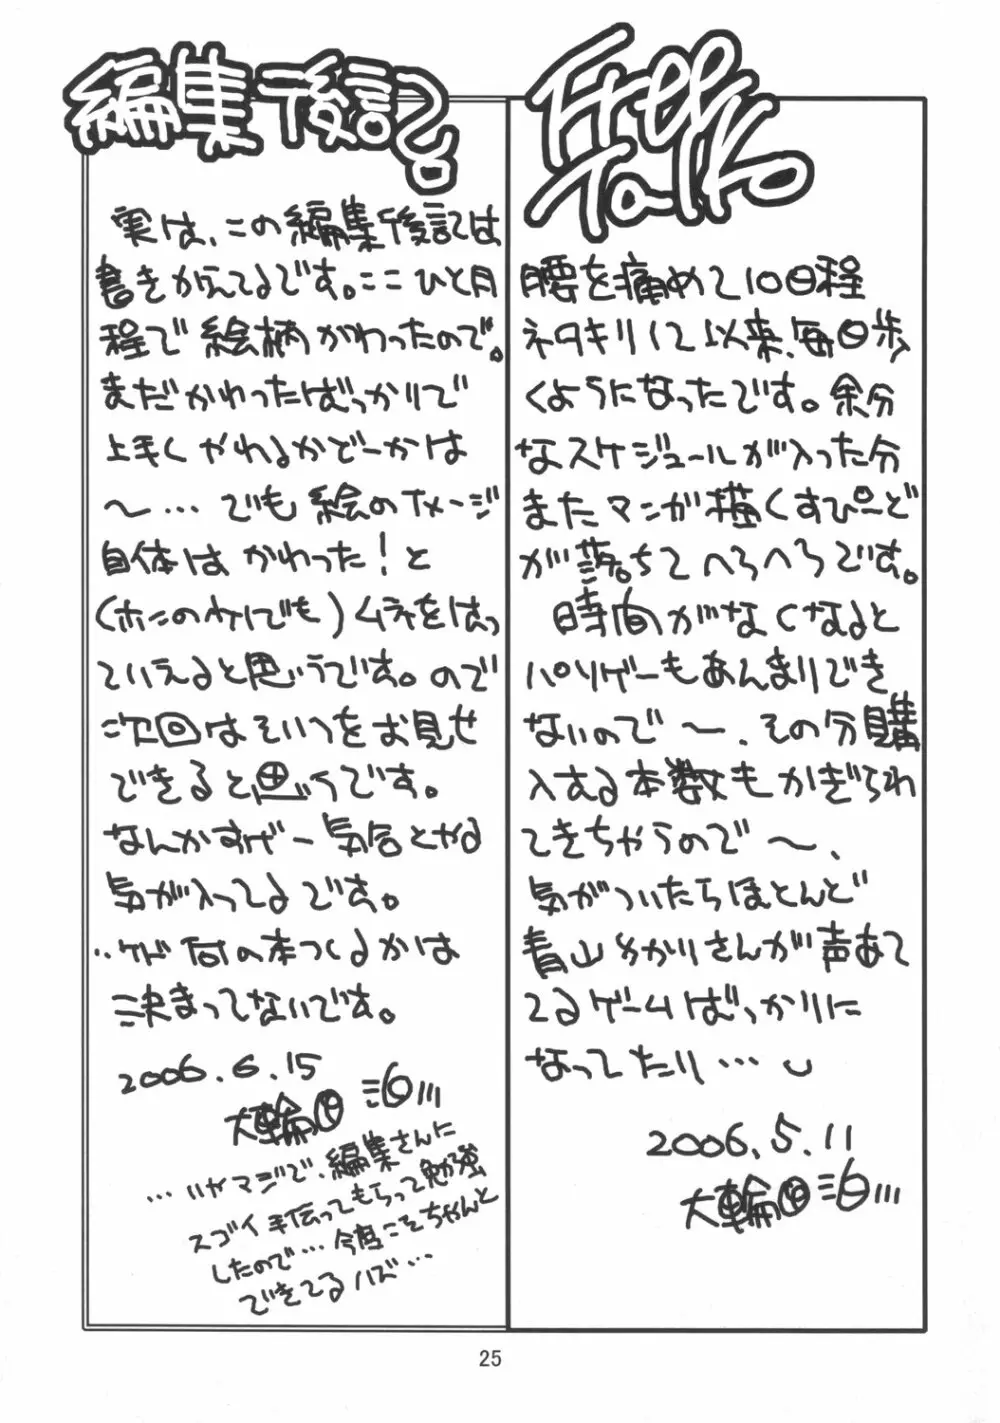 Free
Talk
腰を痛めて10日程
ネタキリ して以来、毎日歩
くようになったです。余分
なスケジュールが入った分
またマンガ描くすぴーど
が落ちてへろへろです。
時間がなくなると
パソゲーもあんまりでき
ないので〜、その分購
入する本数もかぎられ
てきちゃうので〜、
気がついたらほとんど
青山ゆかりさんが声あて
てるゲームばっかりに
なってたり…
2006.5.11
編集後記
実は、この編集後記は
書きかえてるです。ここひと月
程で絵柄かわったので。
まだかわったばっかりで
上手くやれるかどーかは
〜…でも絵のイメージ
自体はかわった!と
(ホンのわけでも)ムネをはっ
ていえると思うです。ので
次回はそいつをお見せ
できると思うです。
なんかすげー気合とやる
気が入ってるです。
…けど何の本つくるかは
決まってないです。
2006.6.15
…いやマジで、編集さんに
スゴイ手伝ってもらって勉強
したので…今度こそちゃんと
できてるハズ…
25